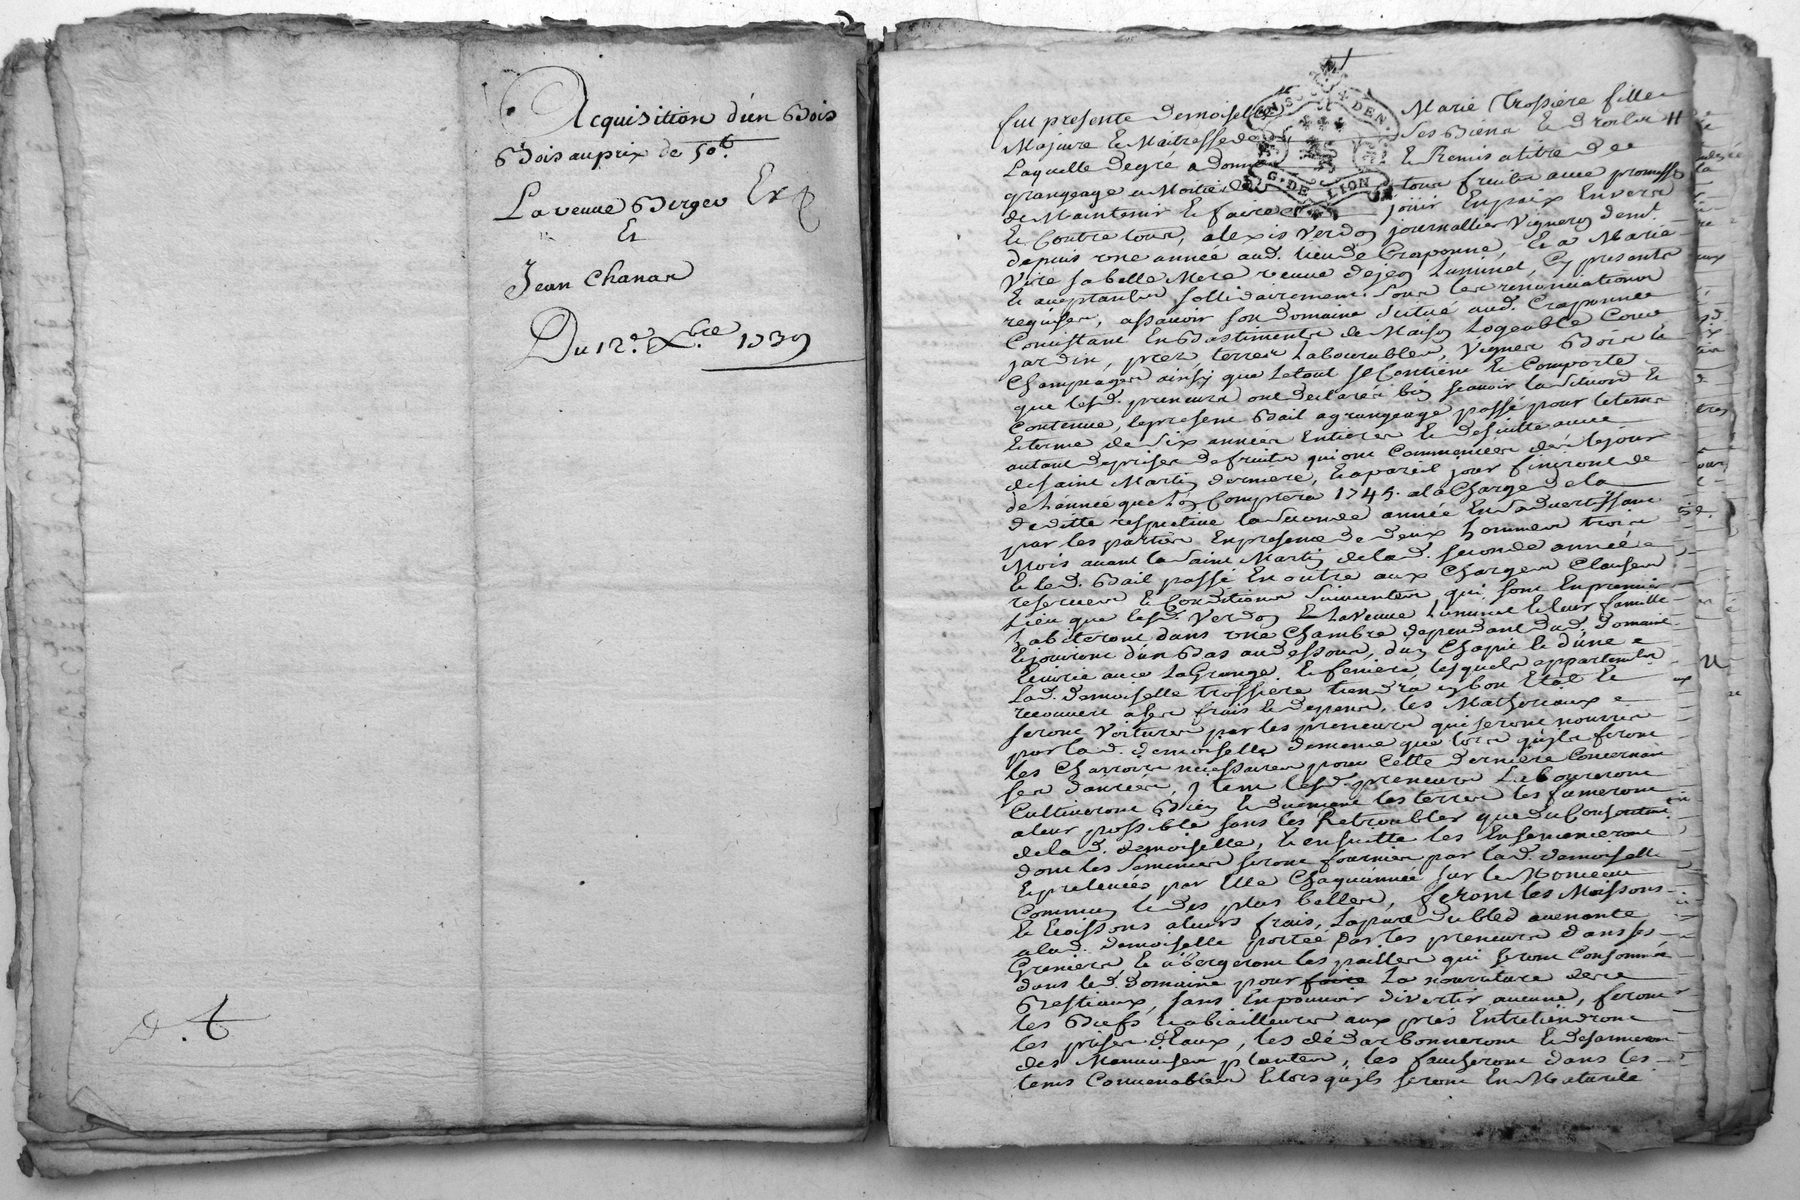 Acquisition d'un Bois
Bois au prix de 50tt.
La veuve Berger Et
Et
Jean Chanar
Du 12e. Xbre 1739
fut presente Demoiselle Marie Trossiere fille
Majeure Et Maitresse de Ses Biens Et Droits
Laquelle de gré a donné Et Remis a titre de
grangeage a Moitié de tous fruits avec promesse
de Maintenir Et faire joüir En paix Envers
Et Contre tous, alexis Verdon journallier Vigneron demt.
depuis une année aud. lieu de Craponne, Et a Marie
Viré sa belle Mere veuve de jean Luminet, Cy presents
Et acceptants sollidairement Sous les renonciations
requises, assavoir son Domaine Scitué aud. Craponne
Consistant En Bastiments de Maison Logeable Cour
jardin, prez terres Labourables, Vignes Bois Et
Champeages ainsy que le tout se Contient Et Comporte
que lesd. preneurs ont declaré bien sçavoir la Situaon. Et
Contenue, le present Bail a grangeage passé pour le tems
Et terme de Six années Entieres Et de suitte avec
autant de prises de fruits qui ont Commencées dés le jour
de saint Martin derniere, Et a pareil jour finiront de
de l'année que l'on Comptera 1745. a la Charge de la
deditte respective la Seconde année En S'advertissant
par les parties En presence de deux hommes trois
Mois avant la Saint Martin de lad. seconde année
Et led. Bail passé En outre aux Charges Clauses
reserves Et Conditions Suivantes qui sont En premier
Lieu que lesd. Verdon Et La Veuve Luminet Et leur famille
habiteront dans une Chambre dependant dud. Domaine
Et joüiront d'un Bas au dessous, d'un Chapit Et d'une
Ecurie avec La Grange Et feniere, lesquels appartements
Lad. demoiselle trossiere tiendra En bon Etat Et
recouvert a ses frais Et depens, les Matheriaux
seront Voiturés par les preneurs qui seront nourris
par lad. demoiselle de meme que lors qu'ils feront
les Charrois necessaires pour Cette derniere Concernant
ses danrées, Item lesd. preneurs Laboureront
Cultiveront Bien Et duement les terres les fumeront
a leur possible sans les Retroubler que du Consentement
de lad. demoiselle, Et ensuitte les Ensemenceront
dont les Semences seront fournies par lad. demoiselle
Et prelevées par Elle Chaque année sur le Monceau
Commun Et des plus belles, feront les Moissons
Et Ecossons a leurs frais, La part du bled avenante
a lad. demoiselle portée par les preneurs dans ses
Greniers Et abergeront les pailles qui seront Consommées
dans led. domaine pour faire La nourriture des
Bestiaux, sans En pouvoir divertir aucune, feront
les Biefs Et abiailleures aux prés Entretiendront
les prises d'Eaux, les dédarbonneront Et desarmeront
des Mauvaises plantes, les faucheront dans les
tems Convenables Et lors qu'ils seront En Maturité